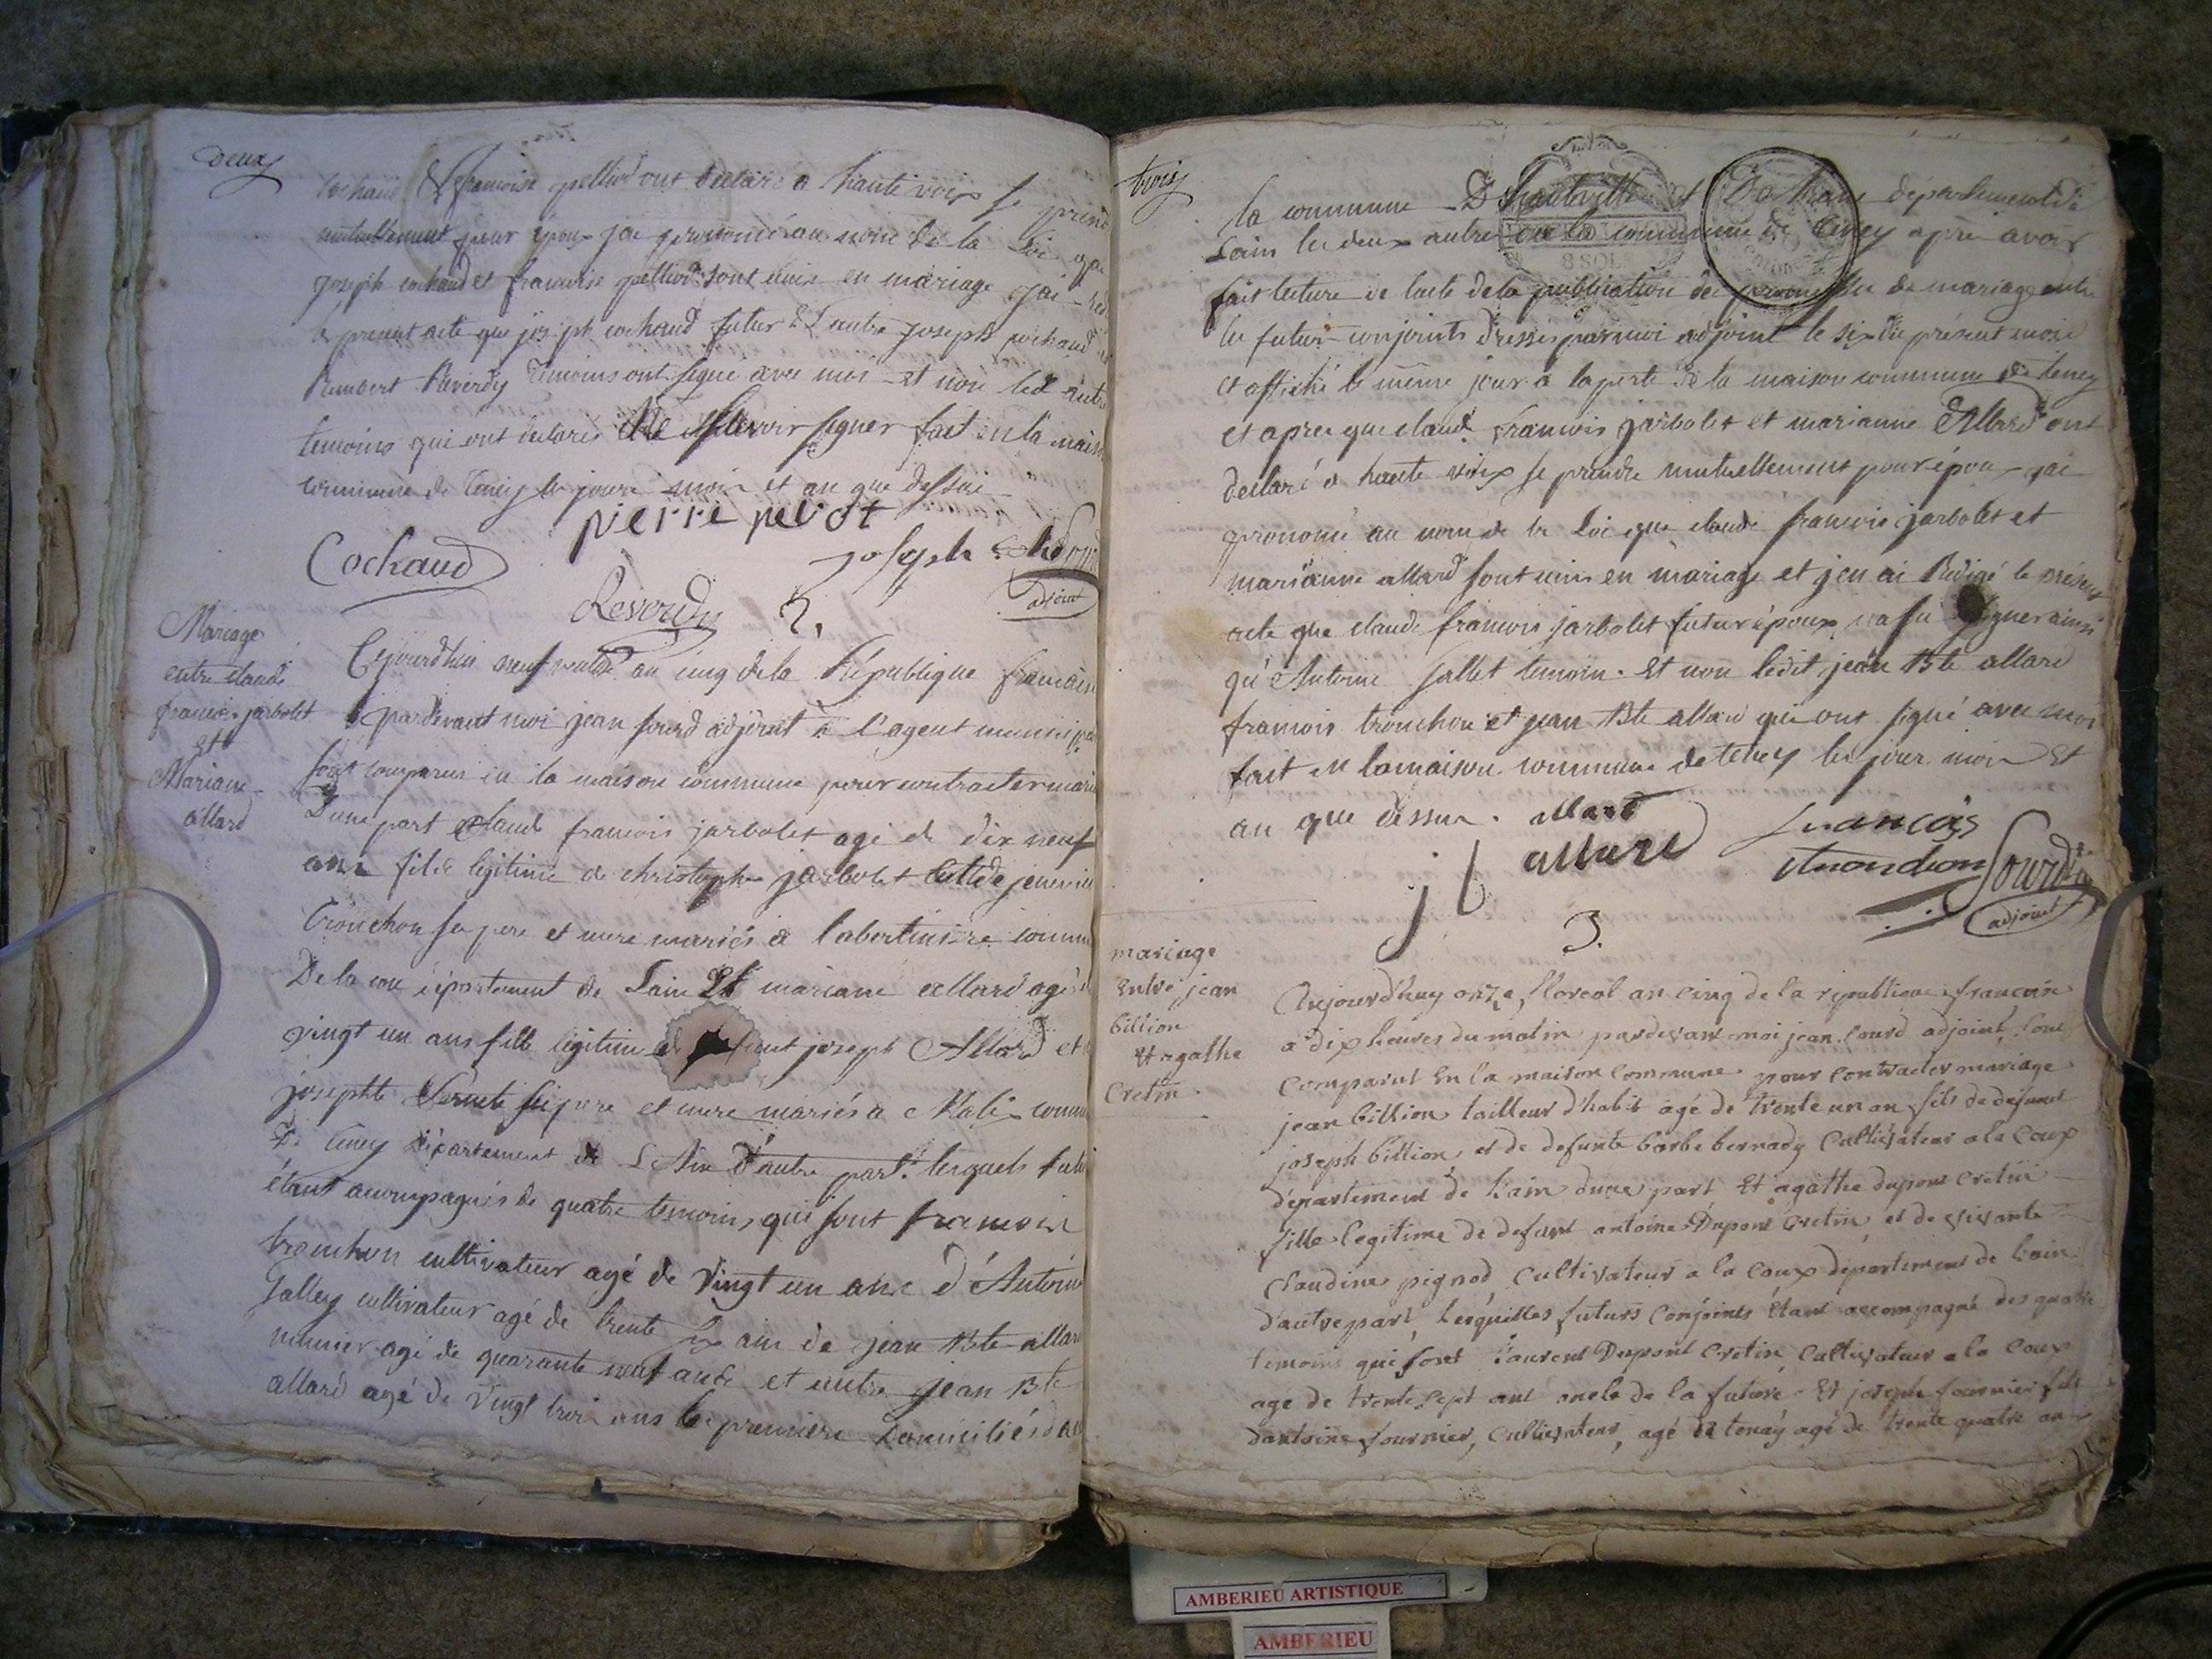 deux
cochaud & francoise pelliod ont déclaré a haute voix se prend
mutuellement pour époux jai prononcé au nom de la Loi que
joseph cochaud et francoise pelliod sont unis en mariage & jai red
le present acte que joseph cochaud futur & l'autre joseph cochaud et
Rembert Reverdy temoins ont signé avec moi et non les autre
temoins qui ont declarés ne savoir signer fait en la maison
commune de tenay les jours mois et an que dessus
pierre pevot
Cochaud
joseph
Sourd
adjoint
Reverdy
2.
Mariage
entre claude
francois jarbolet
et
Mariane
allard
Cejourdhui neuf an cinq de la République francaise
pardevant moi jean sourd adjoint à l'agent municipal
sont comparus en la maison commune pour contracter maria
D'une part claude francois jarbolet agé de dix neuf
ans fils légitime de christophe jarbolet et de jeneviev
tronchon ses pere et mere mariés a commu
De la departement de Lain Et mariane allard agée d
vingt un ans fille legitime de feut joseph Allard et d
josephte ses pere et mere mariés a Malix commu
de tenay Département de L'Ain d'autre part. lesquels futu
étant acompagnés de quatre temoins, qui sont francois
tronchon cultivateur agé de vingt un ans d'Antoine
Salley cultivateur agé de trente six ans de jean Bte allar
munier agé de quarante neuf ans et autre jean Bte
allard agé de vingt trois ans les premiers Domiciliés dan
trois
la commune D'hauteville et departement de
Lain les deux autres de la commune de Tenay après avoir
8 SOL
fait lecture de lacte de la publication des promesses de mariage entre
les futurs conjoints dressés par moi adjoint le six du présent mois
et affiché le même jour a la porte de la maison commune de tenay
et apres que claude francois jarbolet et marianne Allard ont
declaré a haute voix se prendre mutuellement pour époux jai
prononcé au nom de la Loi que claude francois jarbolet et
marianne allard sont unis en mariage et jen ai Rédigé le présent
acte que claude francois jarbolet futur époux na su signer ainsi
qu'Antoine Sallet temoin. Et non ledit jean Bte allard
francois tronchon et jean Bte allard qui ont signé avec moi
fait en la maison commune de tenay les jour mois Et
an que dessus. allard
j b allard
francois
tronchon
Sourd
adjoint
3.
mariage
Entre jean
billion
Et agathe
Cretin.
Aujourd'huy onze floreal an cinq de la republique francaise
a dix heures du matin pardevant moi jean sourd adjoint sont
comparut En la maison commune pour contracter mariage
jean billion tailleur d'habit agé de trente un an fils de defunct
joseph billion et de defunte barbe bernady Cultivateur a la Coux
département de Lain dune part Et agathe dupont cretin
fille legitime de defunt antoine Dupont cretin et de vivante
Claudine pignod Cultivateur a la Coux département de Lain
d'autre part, Lesquelles futurs Conjoints Etant accompagné des quatre
temoins qui sont Laurent Dupont Cretin Cultivateur a la Coux
age de trente sept ans oncle de la future. Et joseph fournier fils
dantoine fournier, Cultivateur, agé de tenay agé de trente quatre ans
AMBERIEU ARTISTIQUE
AMBERIEU